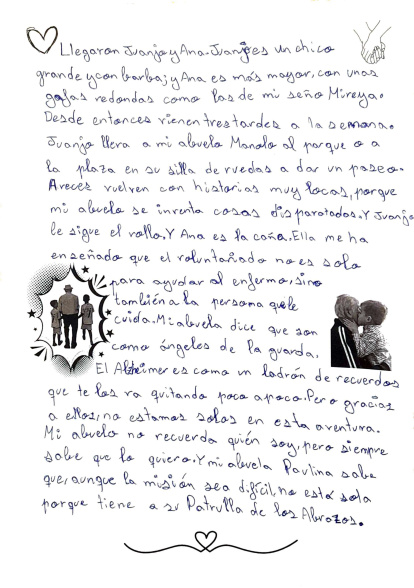 Llegaron Juanjo y Ana. Juanjo es un chico
grande y con barba, y Ana es más mayor, con unas
gafas redondas como las de mi seño Mireya.
Desde entonces vienen tres tardes a la semana.
Juanjo lleva a mi abuelo Manolo al parque o a
la plaza en su silla de ruedas a dar un paseo.
A veces vuelven con historias muy locas, porque
mi abuelo se inventa cosas disparatadas. Y Juanjo
le sigue el rollo. Y Ana es la caña. Ella me ha
enseñado que el voluntariado no es solo
para ayudar al enfermo, sino
también a la persona que le
cuida. Mi abuela dice que son
como ángeles de la guarda.
El Alzheimer es como un ladrón de recuerdos
que te los va quitando poco a poco. Pero gracias
a ellos, no estamos solos en esta aventura.
Mi abuelo no recuerda quién soy, pero siempre
sabe que lo quiero. Y mi abuela Paulina sabe
que, aunque la misión sea difícil, no está sola
porque tiene a su Patrulla de los Abrazos.